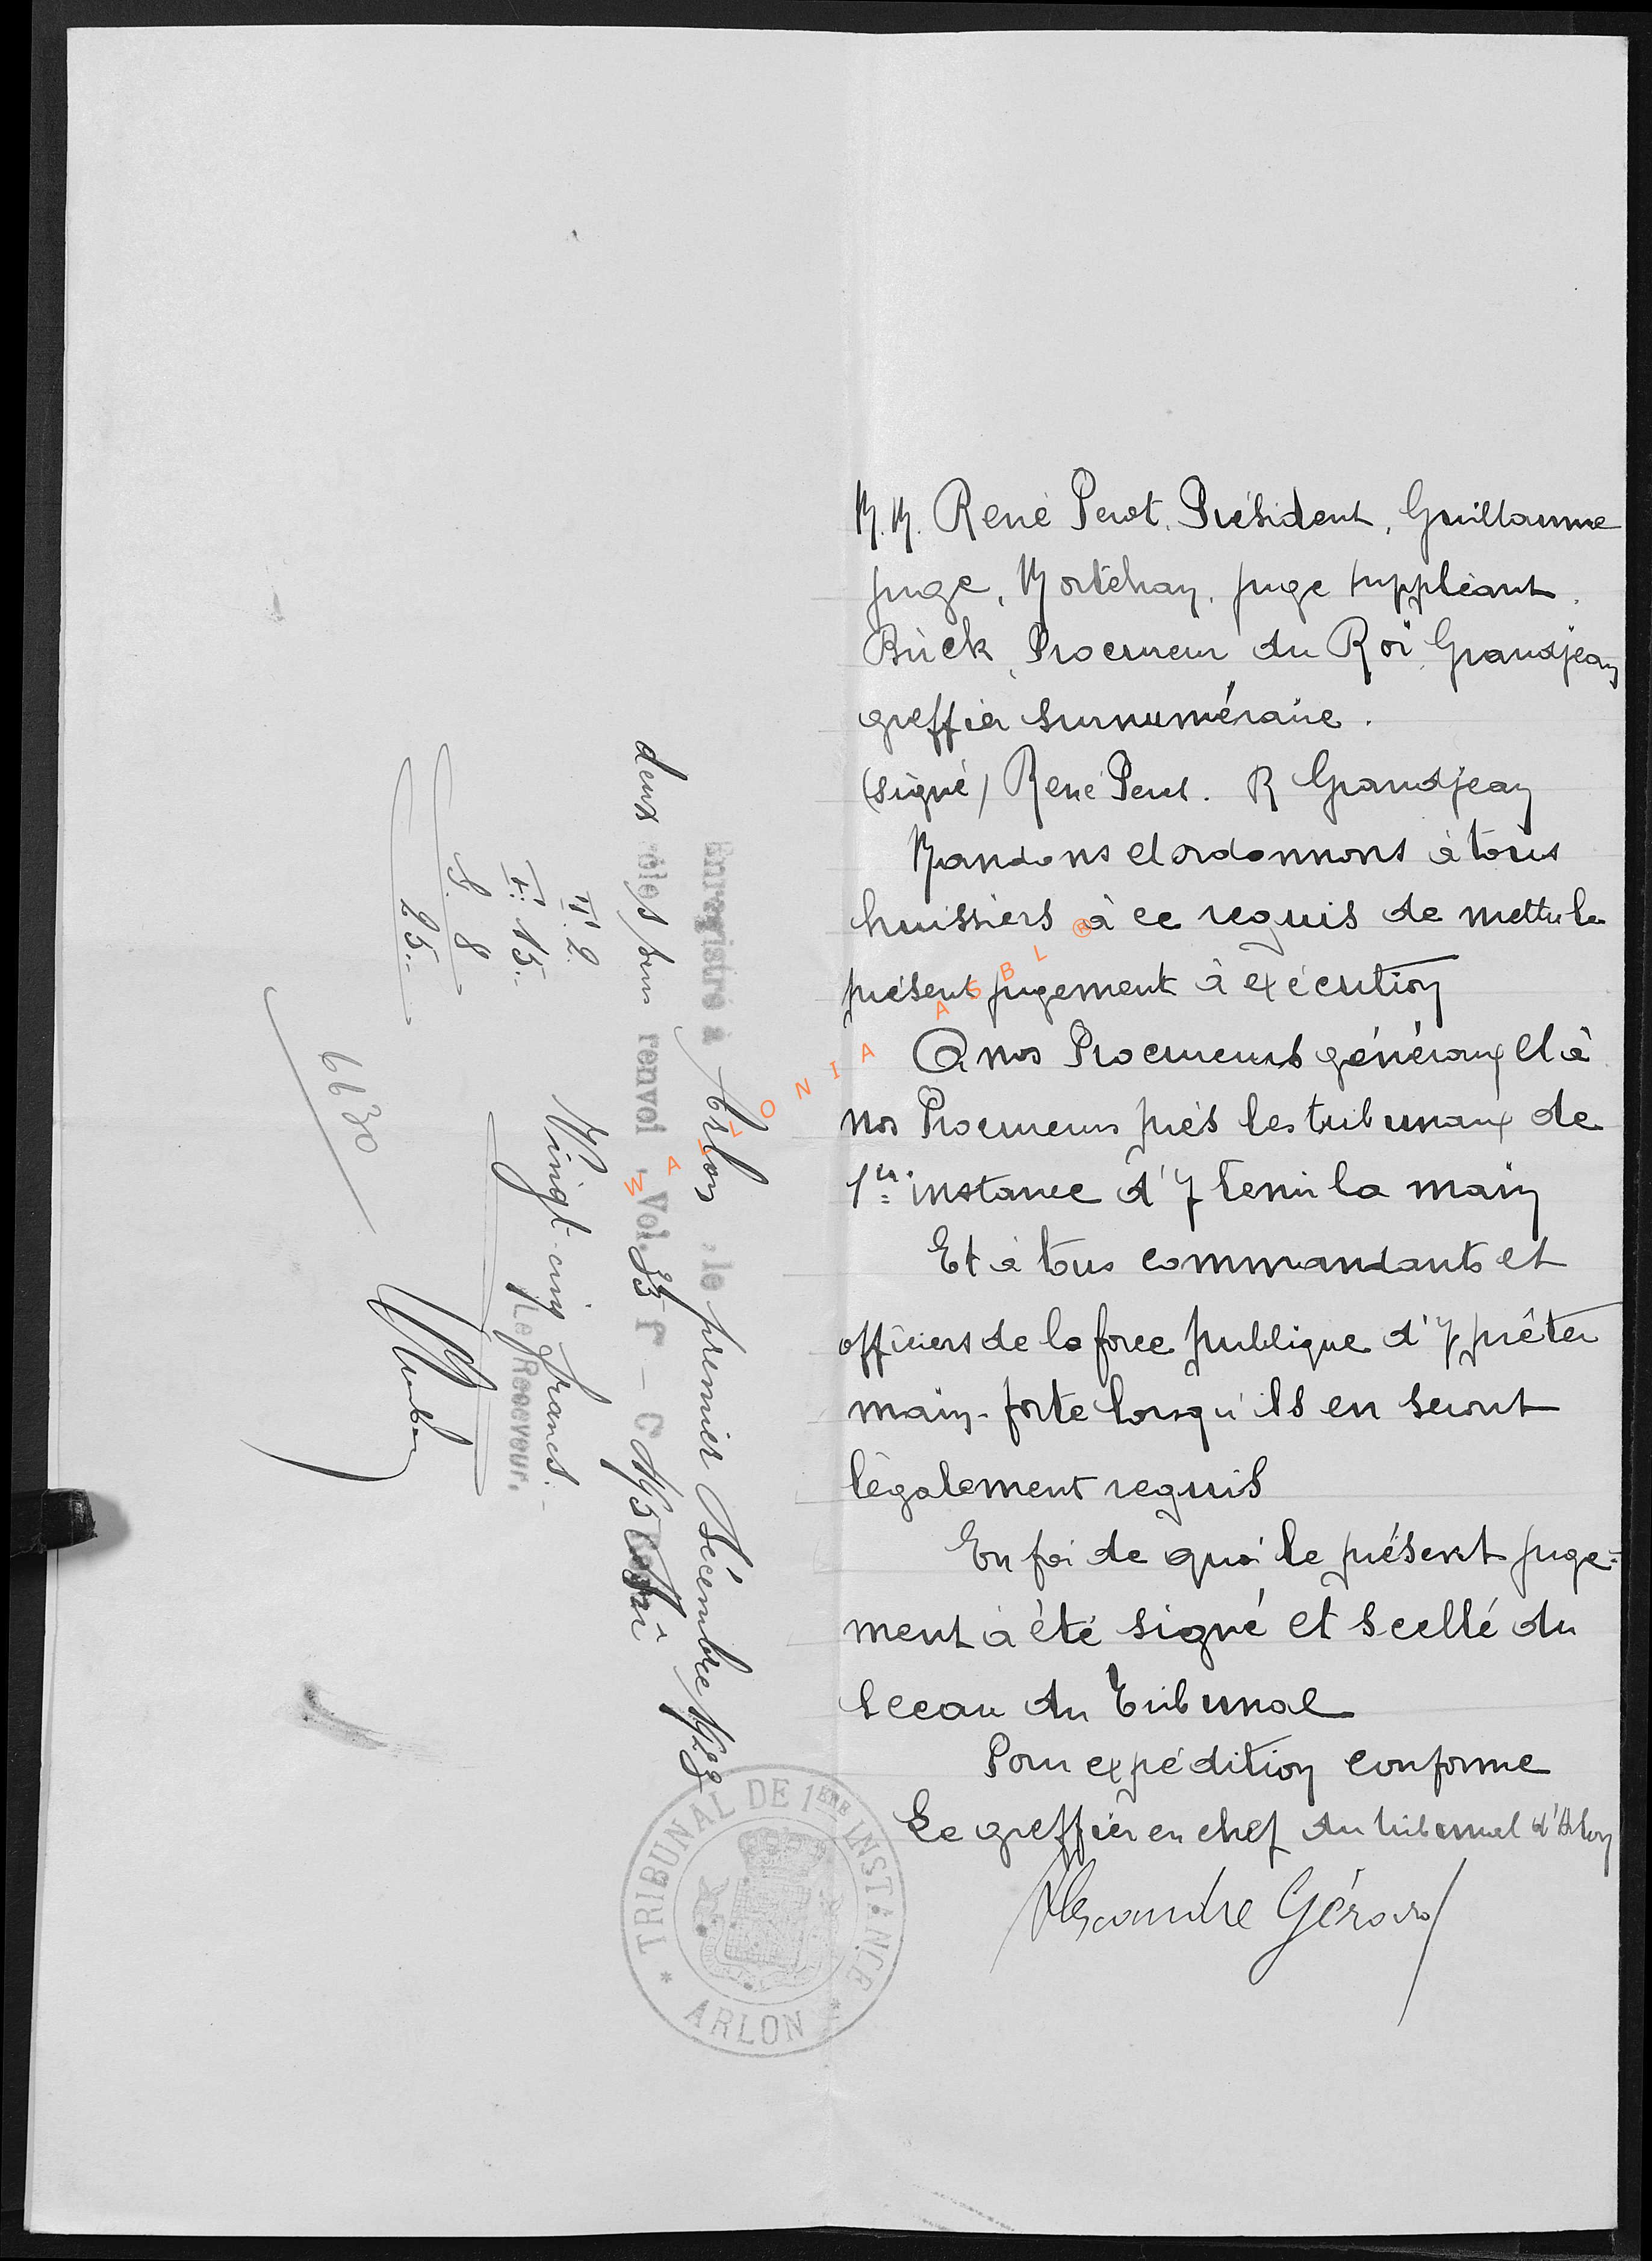 M.M. René Perot. Président, Guillaume
juge, Mortehan, juge suppléant.
Brück, Procureur du Roi Grandjean
greffier surnuméraire.
(signé) René Perot. R Grandjean
Mandons et ordonnons à tous
huissiers à ce requis de mettre le
présent jugement à exécution
A nos Procureurs généraux et à
nos Procureurs près les tribunaux de
1ère instance d'y tenir la main
Et à tous commandants et
officiers de la force publique d'y prêter
main-forte lorsqu'ils en seront
légalement requis
En foi de quoi le présent juge=
ment a été signé et scellé du
sceau du Tribunal
Pour expédition conforme
Le greffier en chef du tribunal d'Arlon
Alexandre Gérard
Enregistré à Arlon, le premier Décembre
deux rôles renvoi, Vol. 35 F - C
T. 2.
E: 15.
S. 8
25..
Vingt-cinq francs.-
Le Receveur,
6630
TRIBUNAL DE 1ERE INSTANCE
* ARLON *
WALLONIA ASBL ®